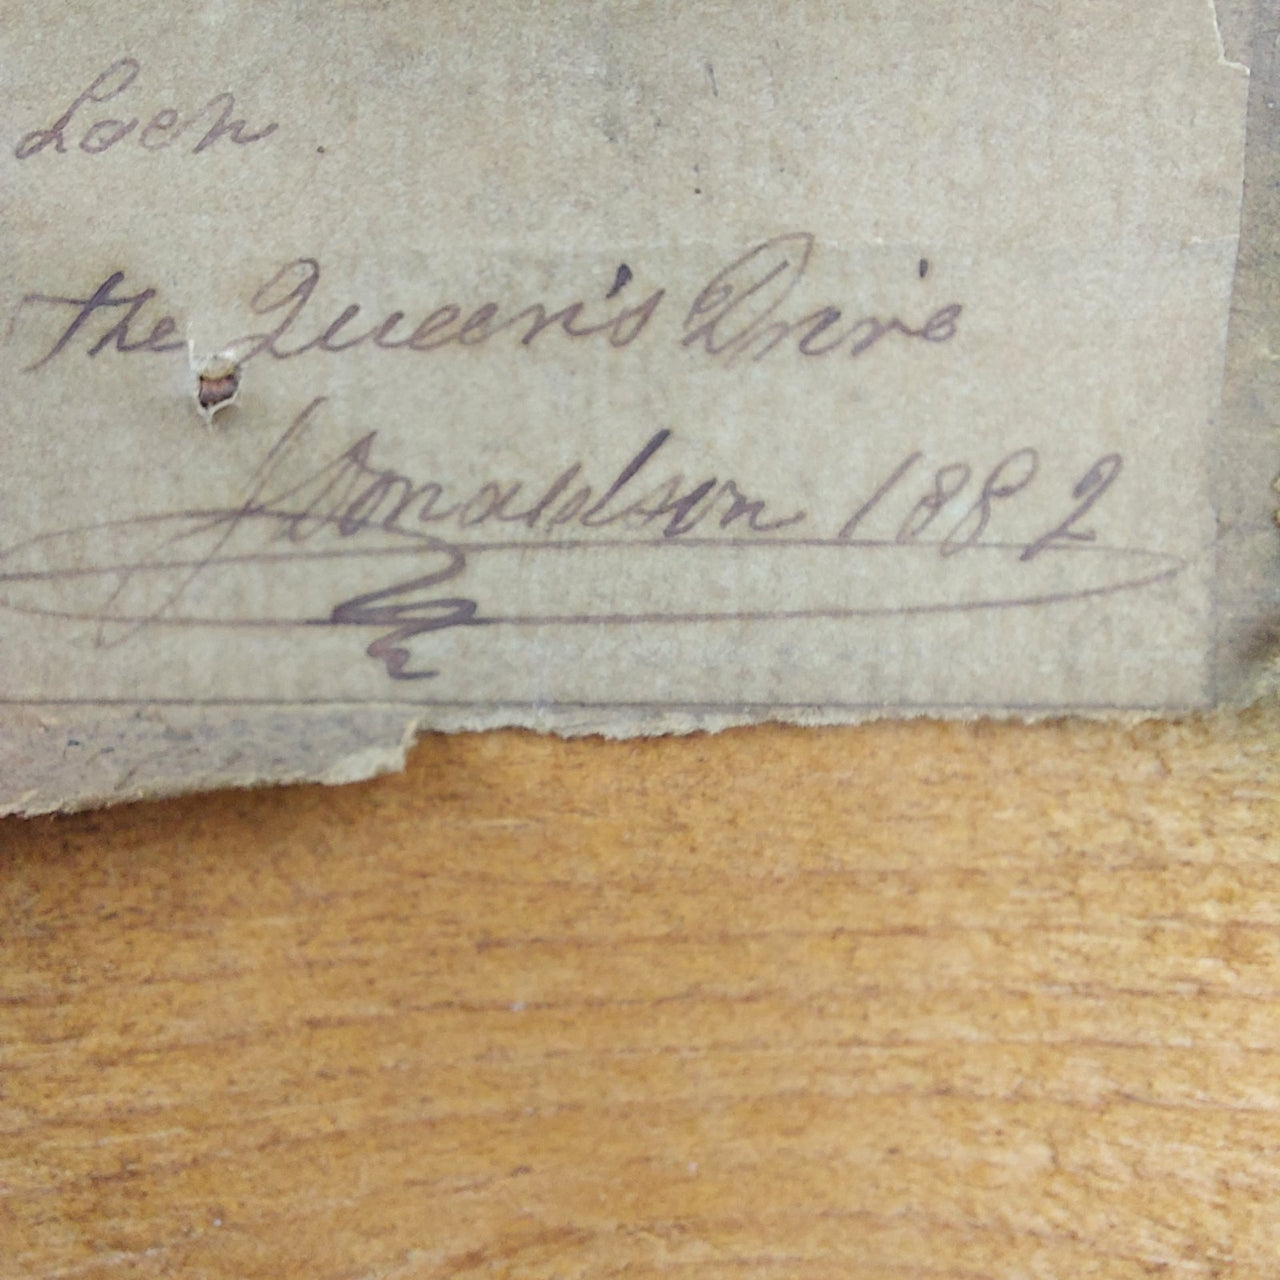 Loch.
the Queen's Drive
J Donaldson 1882